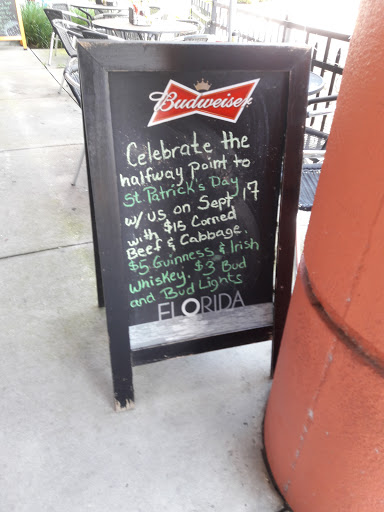 Budweiser
Celebrate the
halfway point to
St. Patrick's Day
w/ us on Sept 17
with $15 Corned
Beef & Cabbage.
$5 Guinness & Irish
Whiskey. $3 Bud
and Bud Lights
FLORIDA